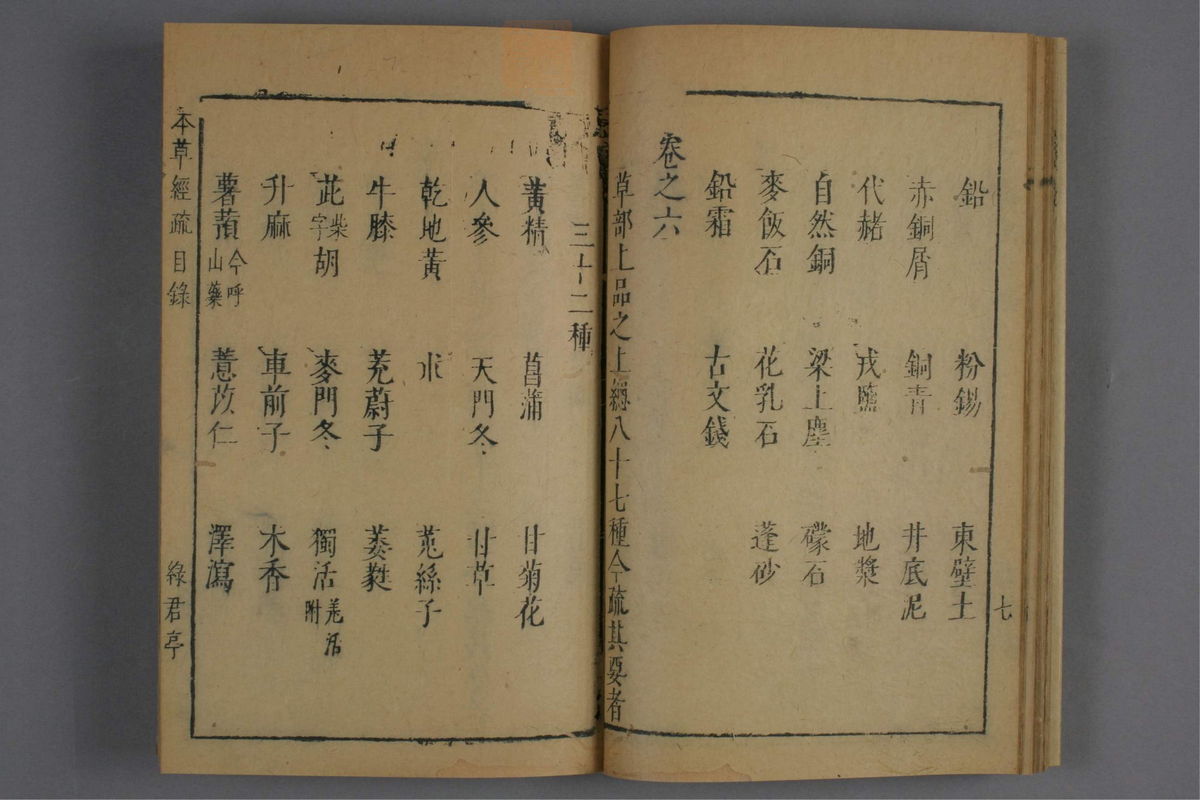 七
鉛 粉錫 東壁土
赤銅屑 銅青 井底泥
代赭 戎鹽 地漿
自然銅 梁上塵 礞石
麥飯石 花乳石 蓬砂
鉛霜 古文錢
卷之六
草部上品之上總八十七種今疏其要者
三十二種
黃精 菖蒲 甘菊花
人參 天門冬 甘草
乾地黃 朮 菟絲子
牛膝 茺蔚子 萎蕤
茈柴字胡 麥門冬 獨活羌活附
升麻 車前子 木香
薯蕷今呼山藥 薏苡仁 澤瀉
本草經疏 目錄 綠君亭